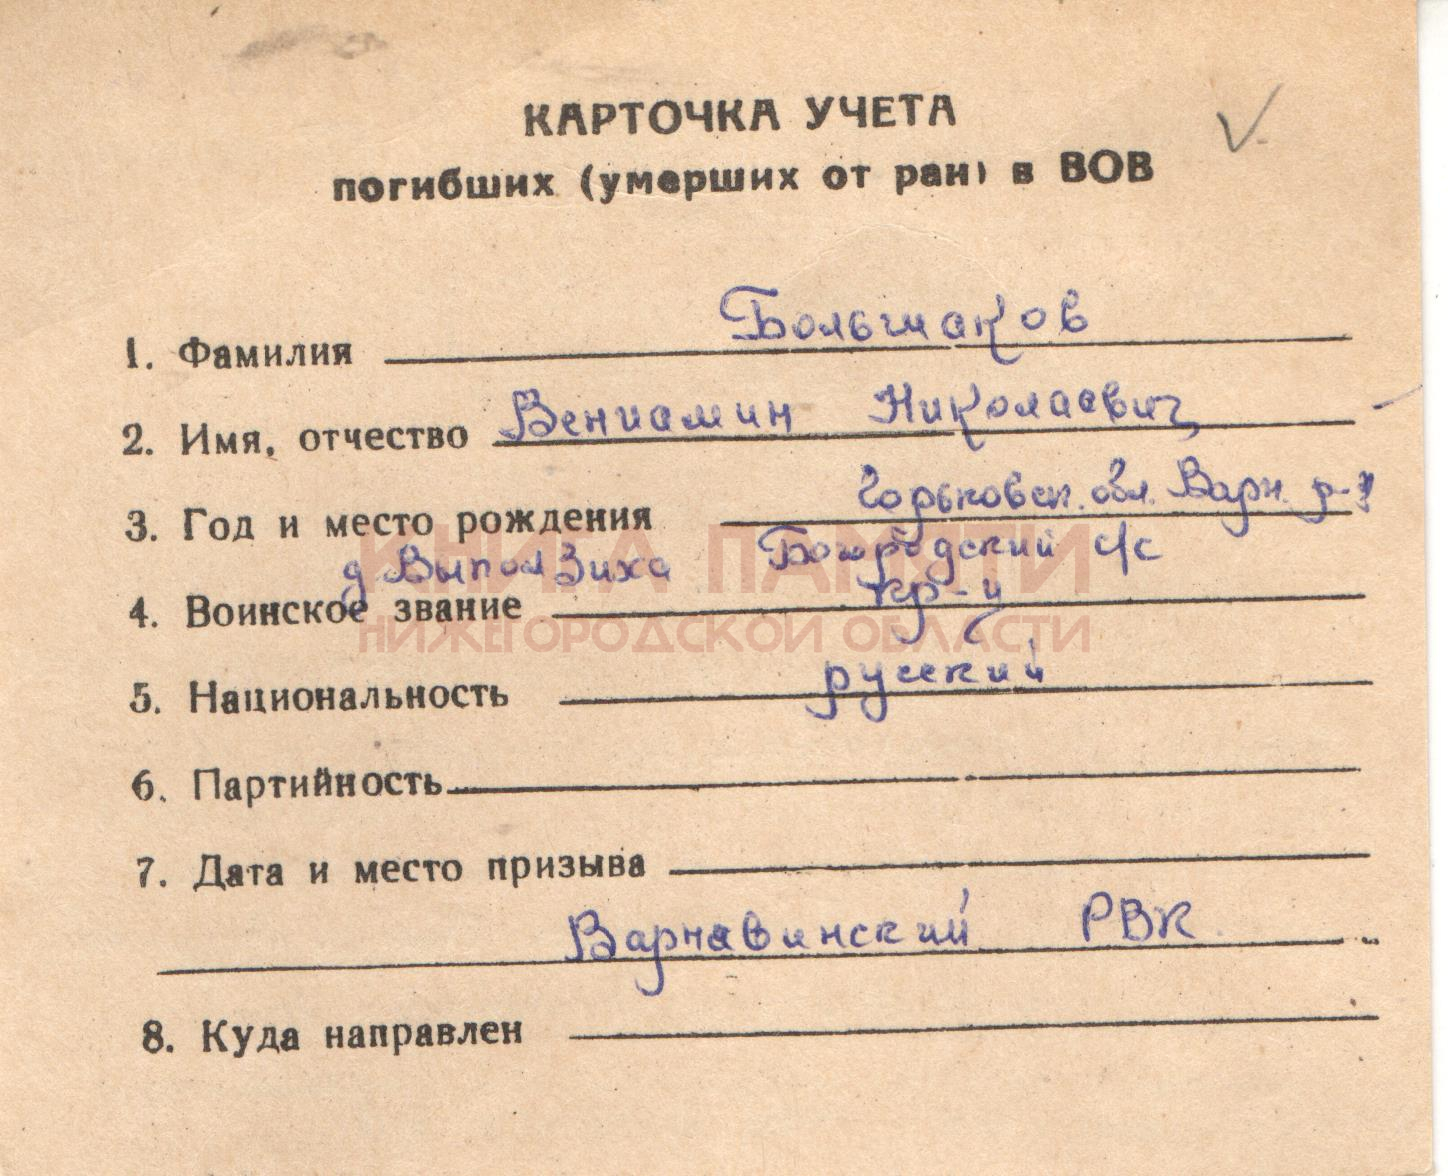 КАРТОЧКА УЧЕТА
погибших (умерших от ран) в ВОВ
1. Фамилия Большаков
2. Имя, отчество Вениамин Николаевич
3. Год и место рождения Горьковск. обл. Варн. р-н
д Выползиха Богородский с/с
4. Воинское звание кр-ц
5. Национальность русский
6. Партийность
7. Дата и место призыва
Варнавинский РВК
8. Куда направлен
КНИГА ПАМЯТИ
НИЖЕГОРОДСКОЙ ОБЛАСТИ